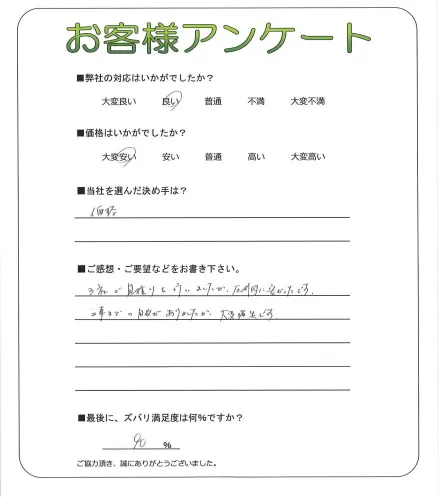 お客様アンケート
■弊社の対応はいかがでしたか？
大変良い 良い 普通 不満 大変不満
■価格はいかがでしたか？
大変安い 安い 普通 高い 大変高い
■当社を選んだ決め手は？
価格
■ご感想・ご要望などをお書き下さい。
3社で見積りを行いましたが、圧倒的に安かったです。
工事までの日数がありましたが、大変満足です。
■最後に、ズバリ満足度は何%ですか？
90 %
ご協力頂き、誠にありがとうございました。